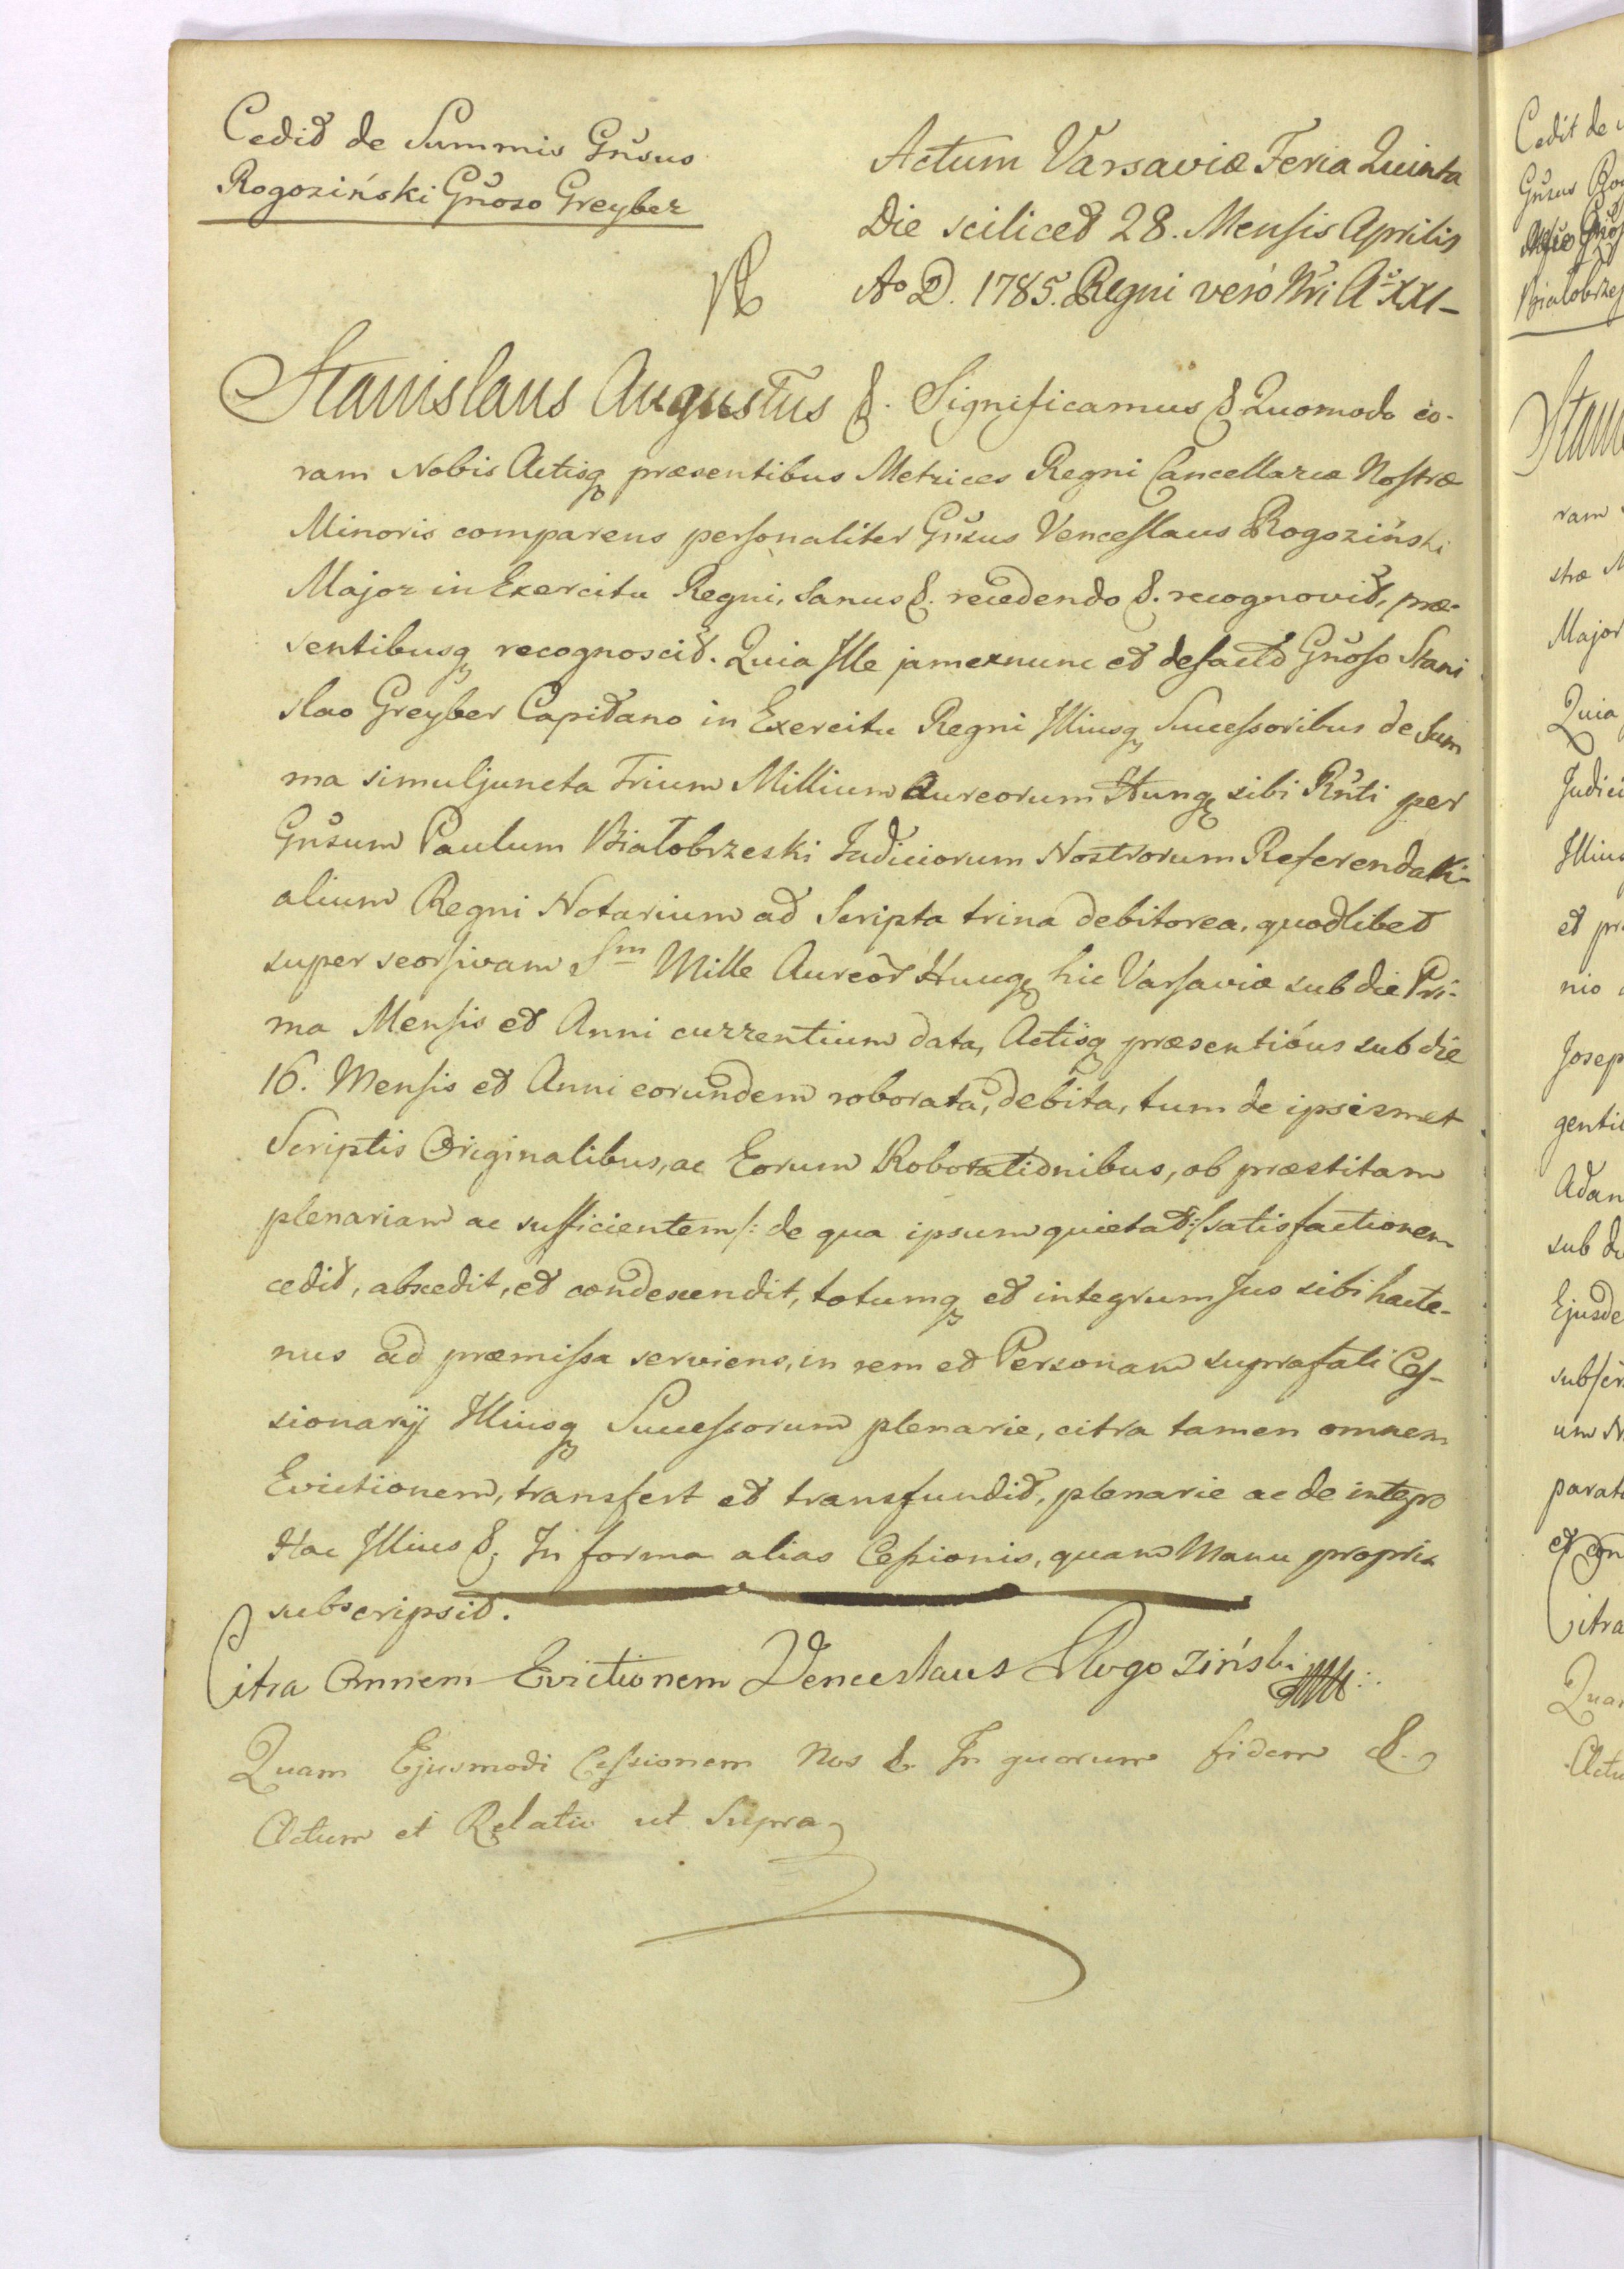 Cedit de Summis Gnsus
Rogoziński Gnoso Greyber
Actum Varsaviæ Feria Quinta
Die scilicet 28. Mensis Aprilis
Ao D. 1785. Regni veró Nri Ao XXI–
Stanislaus Augustus &. Significamus & Quomodo co-
ram Nobis Actisq præsentibus Metrices Regni Cancellariæ Nostræ
Minoris comparens personaliter Gnsus Venceslaus Rogoziński
Major in Exercitu Regni, sanus &. recedendo &. recognovit, præ-
sentibusq recognoscit. Quia Ille jamexnunc et defacto Gnoso Stani
slao Greyber Capitano in Exercitu Regni Illiusq Successoribus de Sum
ma simuljuncta Trium Millium Aureorum Hung sibi Rnti per
Gnsum Paulum Białobrzeski Judiciorum Nostrorum Referendari-
alium Regni Notarium ad Scripta trina debitorea, quodlibet
super seorsivam Sm Mille Aureor Hung hic Varsaviæ sub die Pri-
ma Mensis et Anni currentium data, Actisq præsentibus sub die
16. Mensis et Anni eorundem roborata, debita, tum de ipsismet
Scriptis Originalibus, ac Eorum Roborationibus, ob præstitam
plenariam ac sufficientem /: de qua ipsum quietat :/ satisfactionem
cedit, abscedit, et condescendit, totumq et integrum Jus sibi hacte-
nus ad præmissa serviens, in rem et Personam suprafati Ces-
sionarij Illiusq Successorum plenarie, citra tamen omnem
Evictionem, transfert et transfundit, plenarie ac de integro
Hac Illius &. In forma alias Cessionis, quam Manu propria
subscripsit.
Citra Omnem Evictionem Venceslaus Rogoziński
Quam Ejusmodi Cessionem Nos & In quorum fidem &.
Actum et Relatio ut Supra
Cedit de
Gnsus Rog
Białobrzes
Stani
ram
stræ M
Major
Quia
Judici
Illius
et pr
nio
Josep
genti
Adam
sub d
Ejusde
subscr
um N
parat
Citra
Quam
Actu